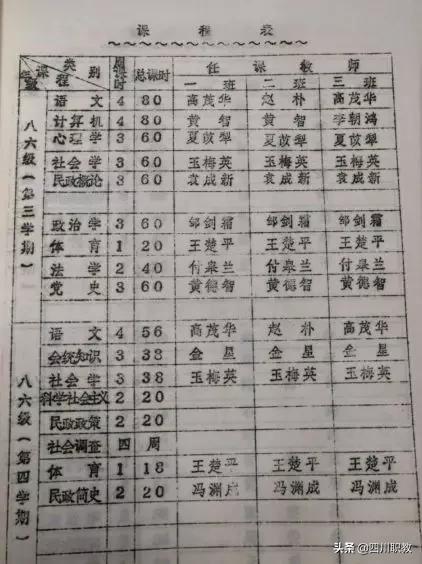 课程表
类别 周课时 总课时 任课教师
年级 课程 一班 二班 三班
八六级(第三学期)
语文 4 80 高茂华 赵朴 高茂华
计算机 4 80 黄智 黄智 李朝鸿
心理学 3 60 夏苡犁 夏苡犁 夏苡犁
社会学 3 60 王梅英 王梅英 王梅英
民政概论 3 60 袁成新 袁成新 袁成新
政治学 3 60 邹剑霜 邹剑霜 邹剑霜
体育 1 20 王楚平 王楚平 王楚平
法学 2 40 付皋兰 付皋兰 付皋兰
党史 3 60 黄德智 黄德智 黄德智
八六级(第四学期)
语文 4 56 高茂华 赵朴 高茂华
会统知识 3 38 金星 金星 金星
社会学 3 38 王梅英 王梅英 王梅英
科学社会主义 2 20
民政政策 2 20
社会调查 四周
体育 1 18 王楚平 王楚平 王楚平
民政简史 2 20 冯渊成 冯渊成 冯渊成
头条 @四川职教